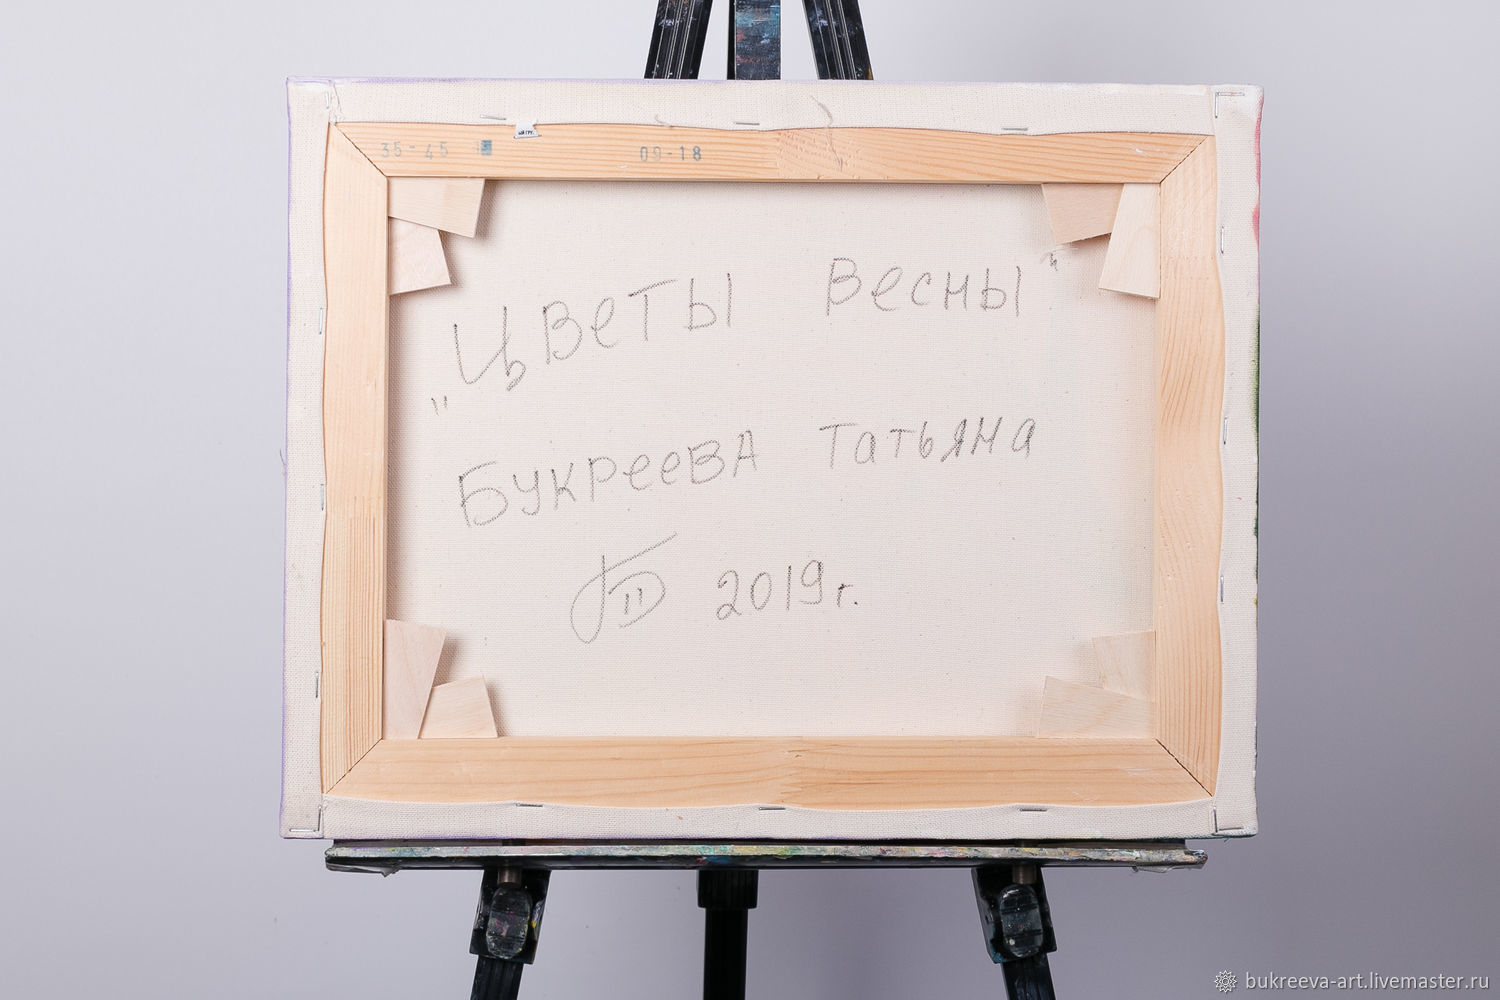 35-45
09-18
"Цветы весны"
Букреева Татьяна
2019г.
bukreeva-art.livemaster.ru